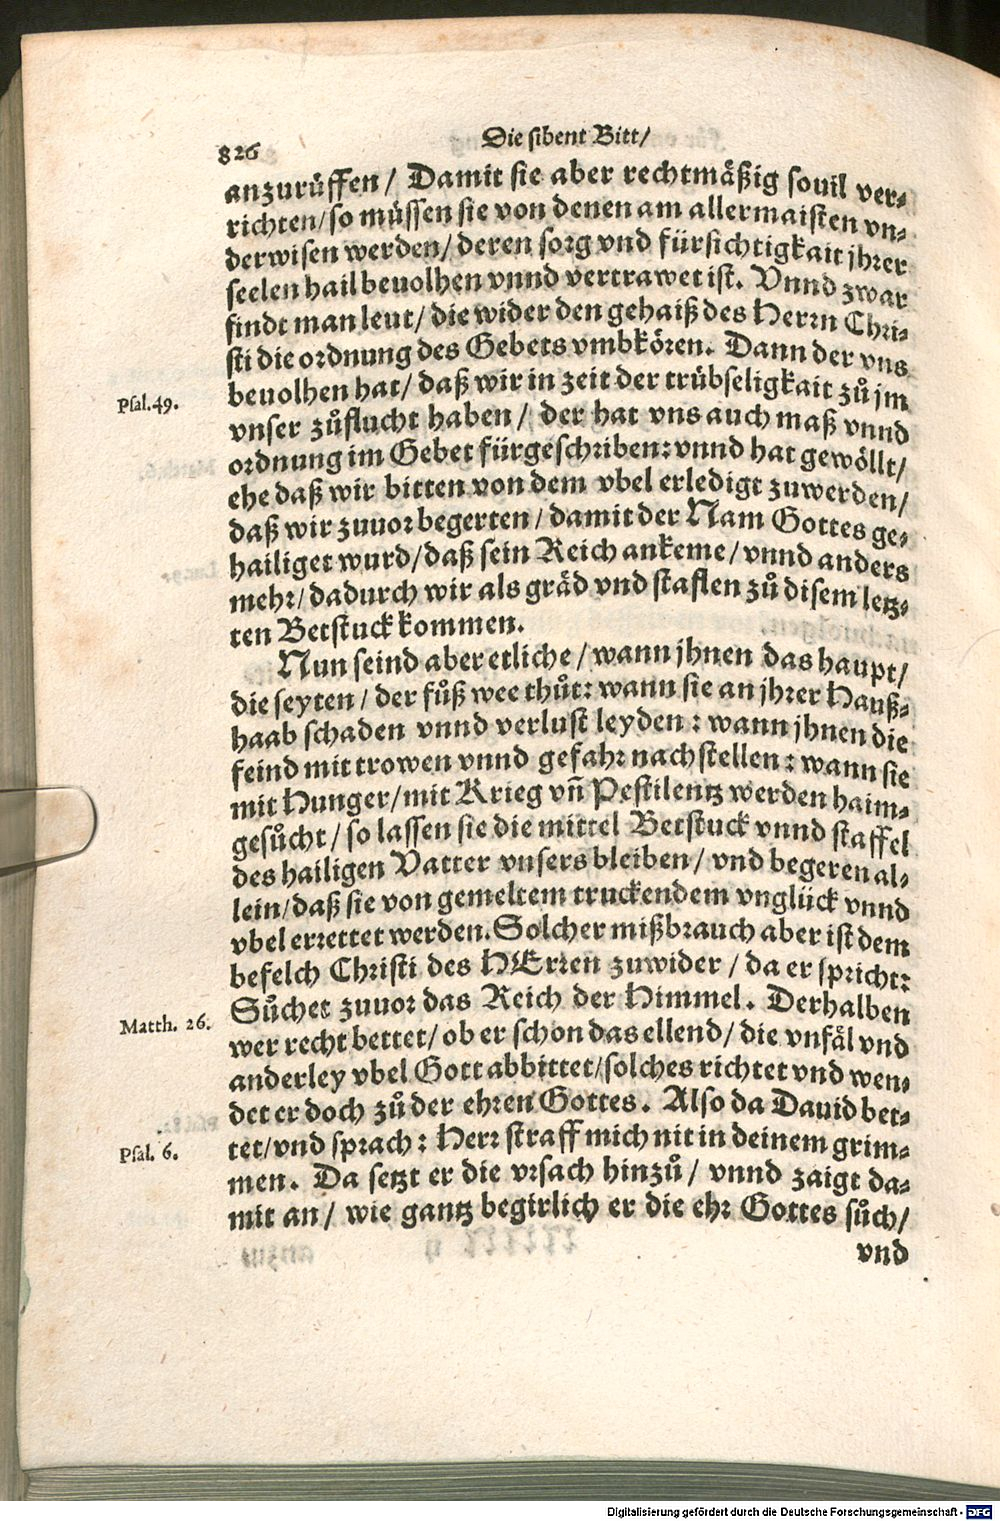 826
Die sibent Bitt/
anzurůffen/ Damit sie aber rechtmåßig souil ver-
richten/so müssen sie von denen am allermaisten vn-
derwisen werden/deren sorg vnd fürsichtigkait jhrer
seelen hail beuolhen vnnd vertrawet ist. Vnnd zwar
findt man leut/ die wider den gehaiß des Herrn Chri-
sti die ordnung des Gebets vmbkören. Dann der vns
beuolhen hat/ daß wir in zeit der trübseligkait zů jm
Psal. 49.
vnser zůflucht haben/ der hat vns auch maß vnnd
ordnung im Gebet fürgeschriben: vnnd hat gewöllt/
ehe daß wir bitten von dem vbel erledigt zuwerden/
daß wir zuuor begerten/damit der Nam Gottes ge-
hailiget wurd/daß sein Reich ankeme/vnnd anders
mehr/dadurch wir als gräd vnd staflen zů disem letz-
ten Betstuck kommen.
Nun seind aber etliche/wann jhnen das haupt/
die seyten/ der fůß wee thůt: wann sie an jhrer Hauß-
haab schaden vnnd verlust leyden: wann jhnen die
feind mit trowen vnnd gefahr nachstellen: wann sie
mit Hunger/mit Krieg vñ Pestilentz werden haim-
gesůcht/so lassen sie die mittel Betstuck vnnd staffel
des hailigen Vatter vnsers bleiben/ vnd begeren al-
lein/daß sie von gemeltem truckendem vnglück vnnd
vbel errettet werden. Solcher mißbrauch aber ist dem
befelch Christi des HErren zuwider/da er spricht:
Sůchet zuuor das Reich der Himmel. Derhalben
Matth. 26.
wer recht bettet/ob er schon das ellend/die vnfäl vnd
anderley vbel Gott abbittet/solches richtet vnd wen-
det er doch zů der ehren Gottes. Also da Dauid bet-
tet/vnd sprach: Herr straff mich nit in deinem grim-
Psal. 6.
men. Da setzt er die vrsach hinzů/ vnnd zaigt da-
mit an/ wie gantz begirlich er die ehr Gottes sůch/
vnd
Digitalisierung gefördert durch die Deutsche Forschungsgemeinschaft - DFG